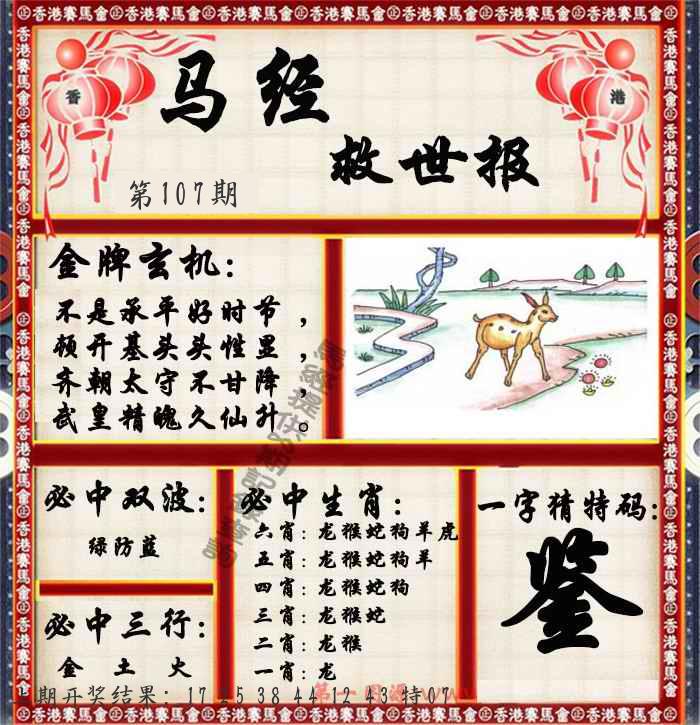 香港賽馬會 香港賽馬會 香港賽馬會 香港賽馬會 香港賽馬會 香港賽馬會
香 港
马经
救世报
第107期
金牌玄机:
不是承平好时节，
顿开基头头性显，
齐朝太守不甘降，
武皇精魄久仙升。
必中双波:
绿防蓝
必中三行:
金 土 火
必中生肖:
六肖:龙猴蛇狗羊虎
五肖:龙猴蛇狗羊
四肖:龙猴蛇狗
三肖:龙猴蛇
二肖:龙猴
一肖:龙
一字猜特码:
鉴
期开奖结果: 17 5 38 44 12 43 特07